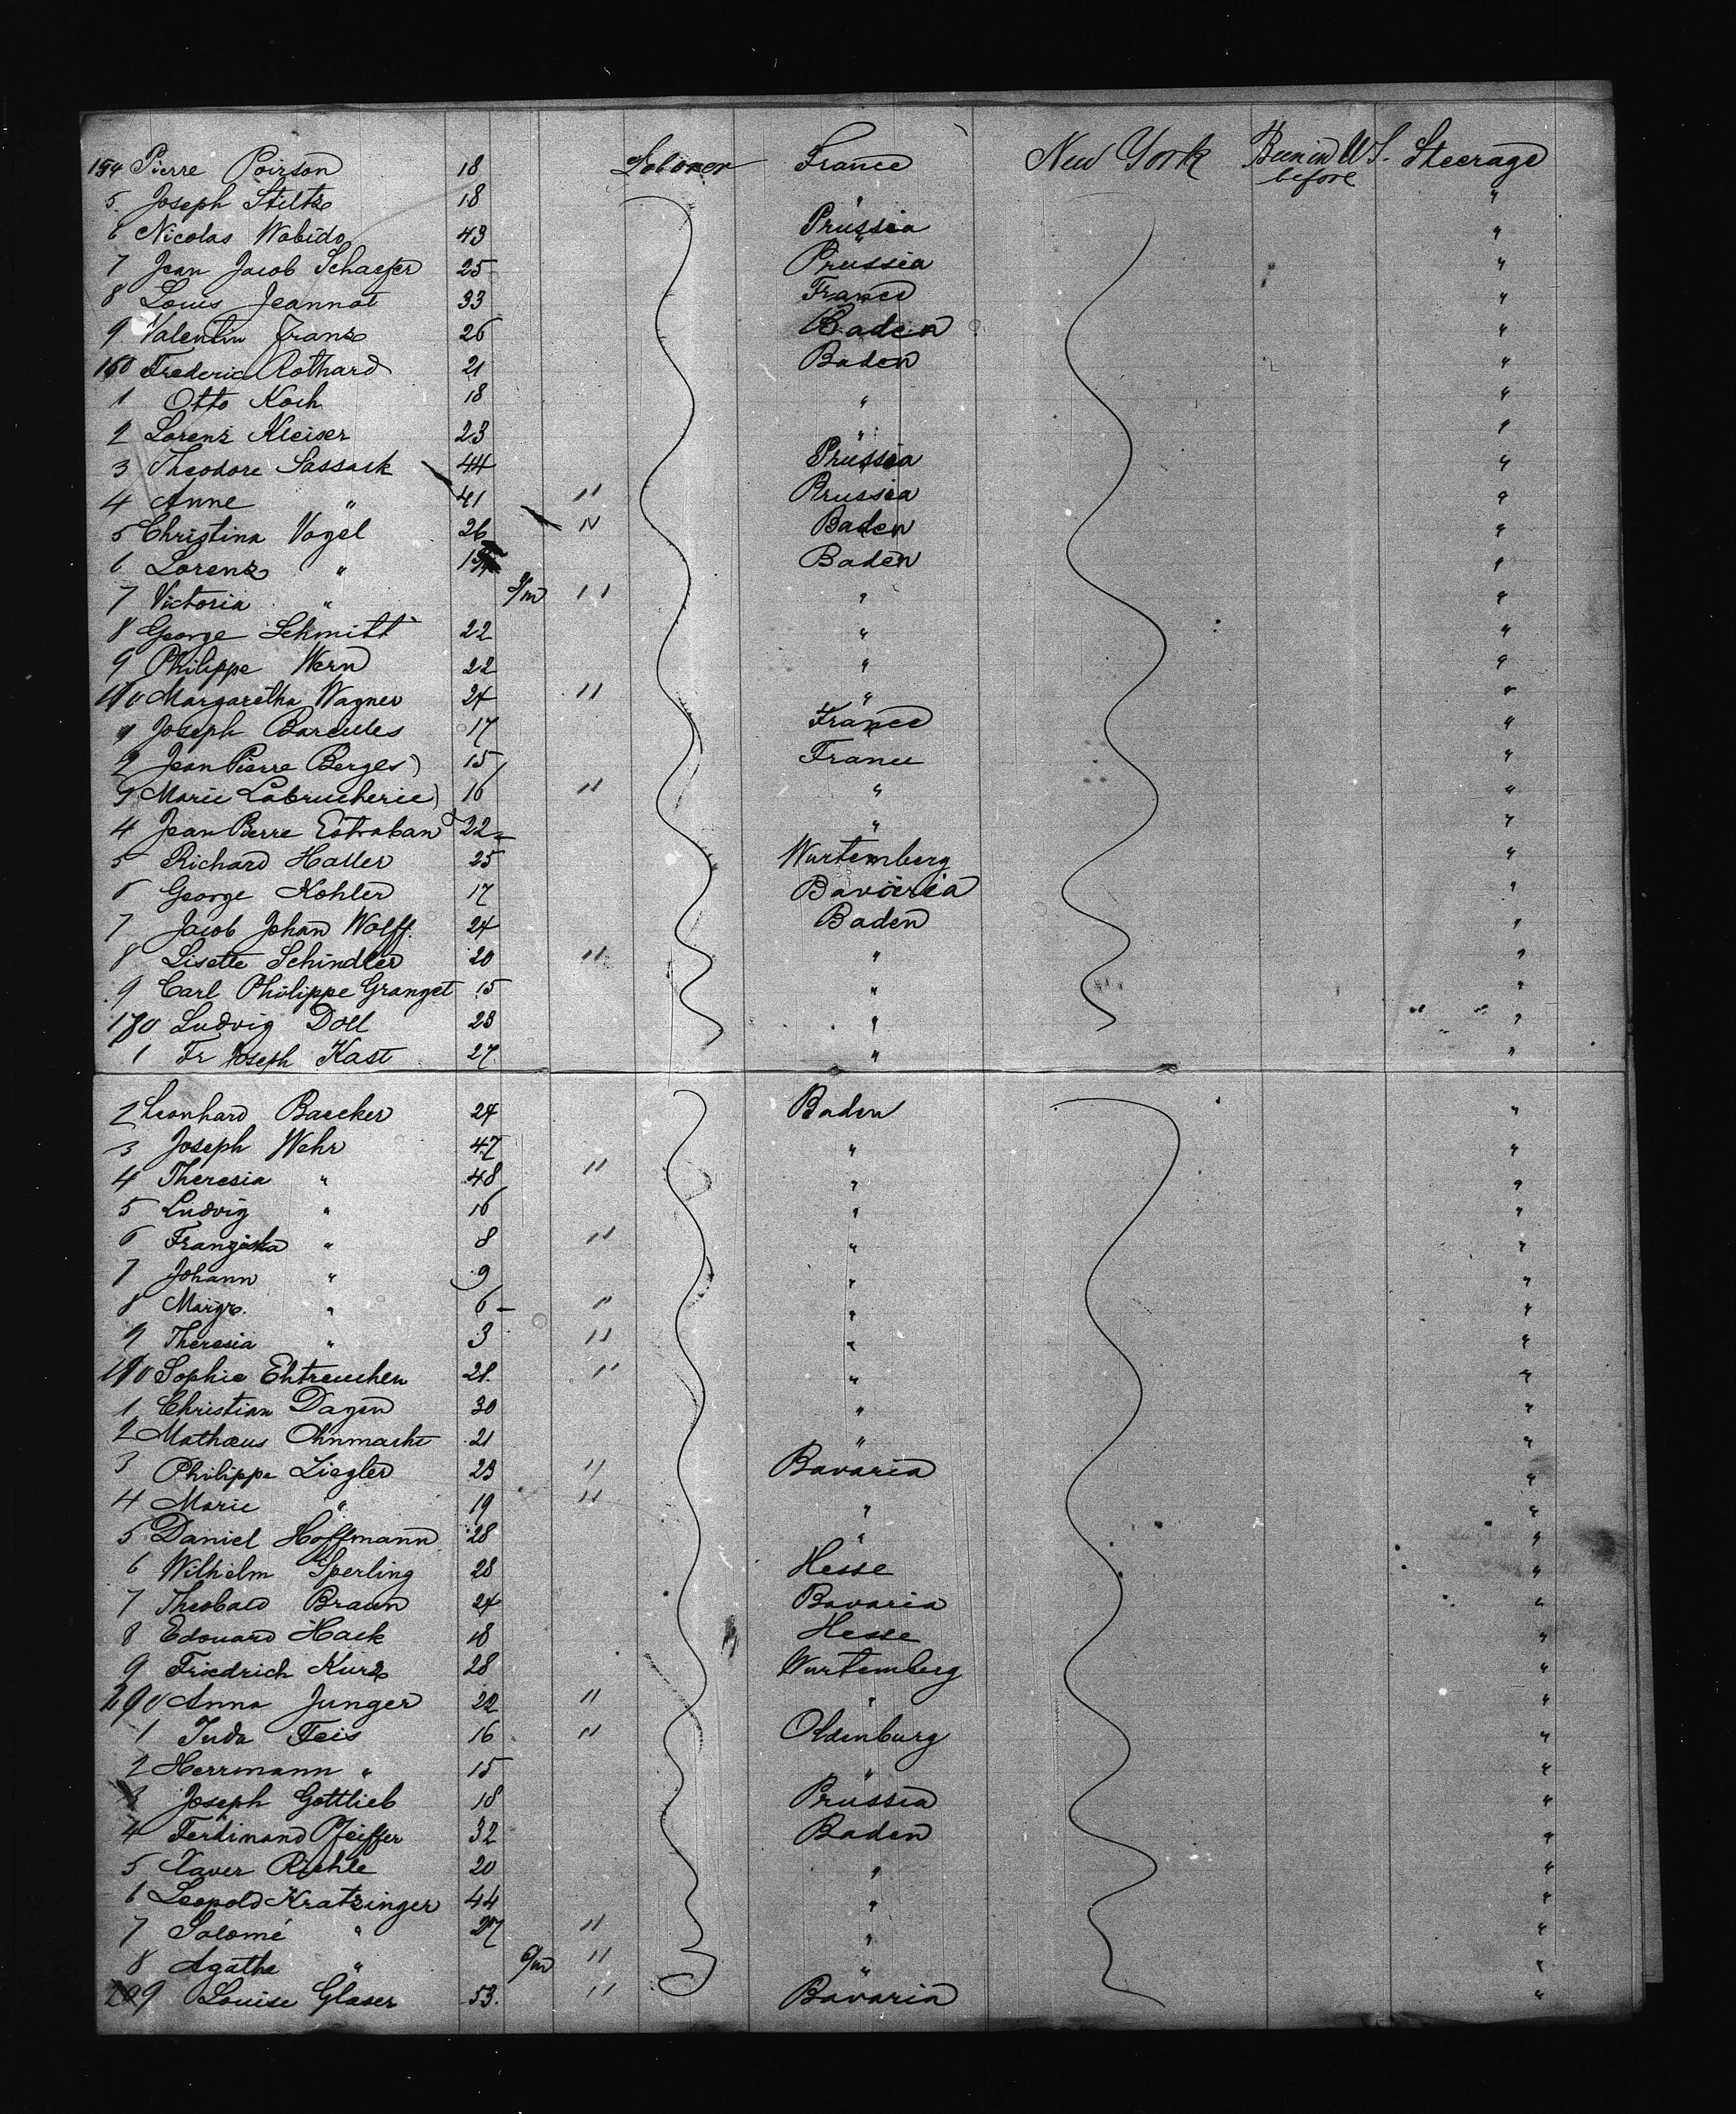 154 Pierre Poirson 18 Laborer France New York Been in U.S. before Steerage
5 Joseph Stiltz 18 " "
6 Nicolas Wabido 43 Prussia "
7 Jean Jacob Schaefer 25 Prussia "
8 Louis Jeannot 33 France "
9 Valentin Franz 26 Baden "
160 Frederic Rothard 21 Baden "
1 Otto Koch 18 " "
2 Lorenz Kleiser 23 " "
3 Theodore Sassack 44 Prussia "
4 Anne " 41 " Prussia "
5 Christina Vogel 26 " Baden "
6 Lorenz " Baden "
7 Victoria " 9/m " " "
8 George Schmitt 22 " "
9 Philippe Wern 22 " "
170 Margaretha Wagner 24 " " "
1 Joseph Bareilles 17 France "
2 Jean Pierre Berges 15 France "
3 Marie Labrucherie 16 " " "
4 Jean Pierre Estraban 22 " "
5 Richard Haller 25 Wurtemberg "
6 George Kohler 17 Bavaria "
7 Jacob Johan Wolff 24 Baden "
8 Lisette Schindler 20 " " "
9 Carl Philippe Granget 15 " "
180 Ludvig Doll 23 " "
1 Fr Joseph Kast 27 " "
2 Leonhard Baecker 24 Baden "
3 Joseph Wehr 47 " "
4 Theresia " 48 " " "
5 Ludvig " 16 " "
6 Franziska " 8 " " "
7 Johann " 9 " "
8 Margr. " 6 " " "
9 Theresia " 3 " " "
190 Sophie Ehtreuchen 21 " " "
1 Christian Dagen 30 " "
2 Mathæus Ohnmacht 21 " "
3 Philippe Ziegler 23 " Bavaria "
4 Marie " 19 " " "
5 Daniel Hoffmann 28 " "
6 Wilhelm Sperling 28 Hesse "
7 Theobald Braun 24 Bavaria "
8 Edouard Hack 18 Hesse "
9 Friedrich Kurz 28 Wurtemberg "
Anna Junger 22 " " "
1 Juda Feis 16 " Oldenburg "
2 Herrmann " 15 " "
3 Joseph Gottlieb 18 Prussia "
4 Ferdinand Pfeiffer 32 Baden "
5 Xaver Riehle 20 " "
6 Leopold Kratzinger 44 " "
7 Salomé " 27 " " "
8 Agathe " 6/m " " "
209 Louise Glaser 53 " Bavaria "